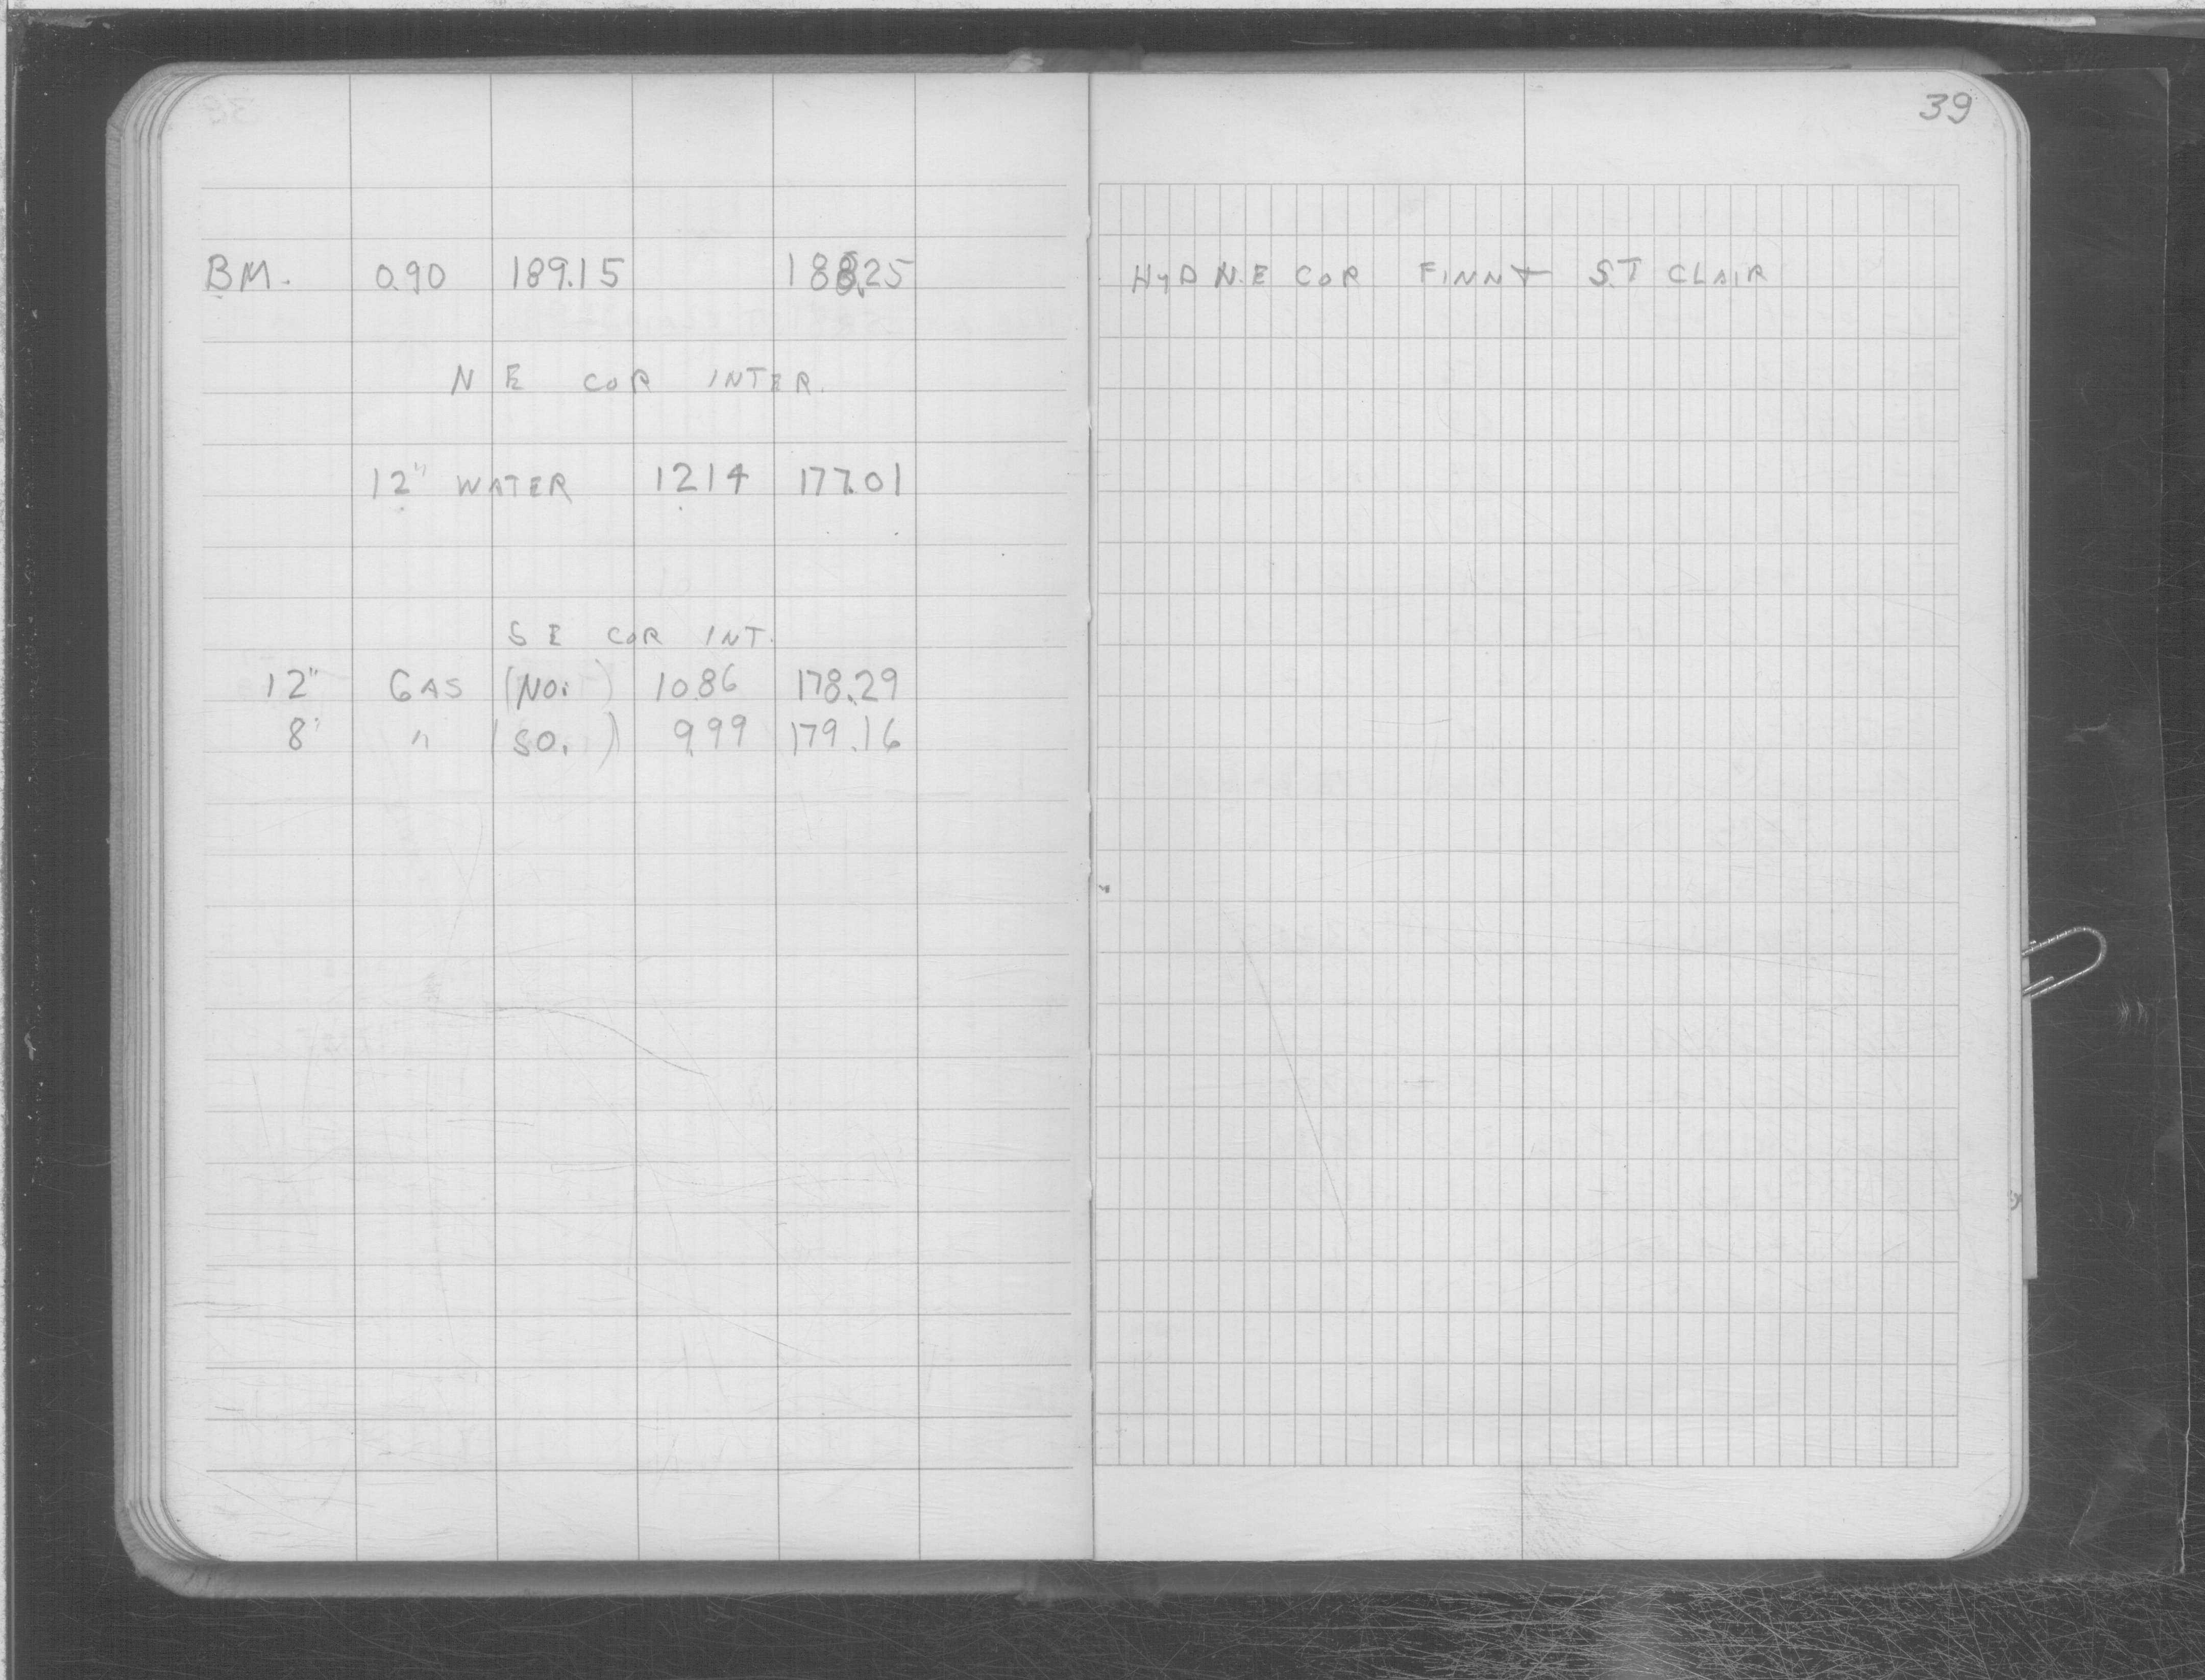 39
BM. 0.90 189.15 188.25 HYD N.E COR FINN + ST CLAIR
N E COR INTER.
12" WATER 12 14 177.01
S E COR INT.
12" GAS (NO.) 10.86 178.29
8" " (SO.) 9.99 179.16